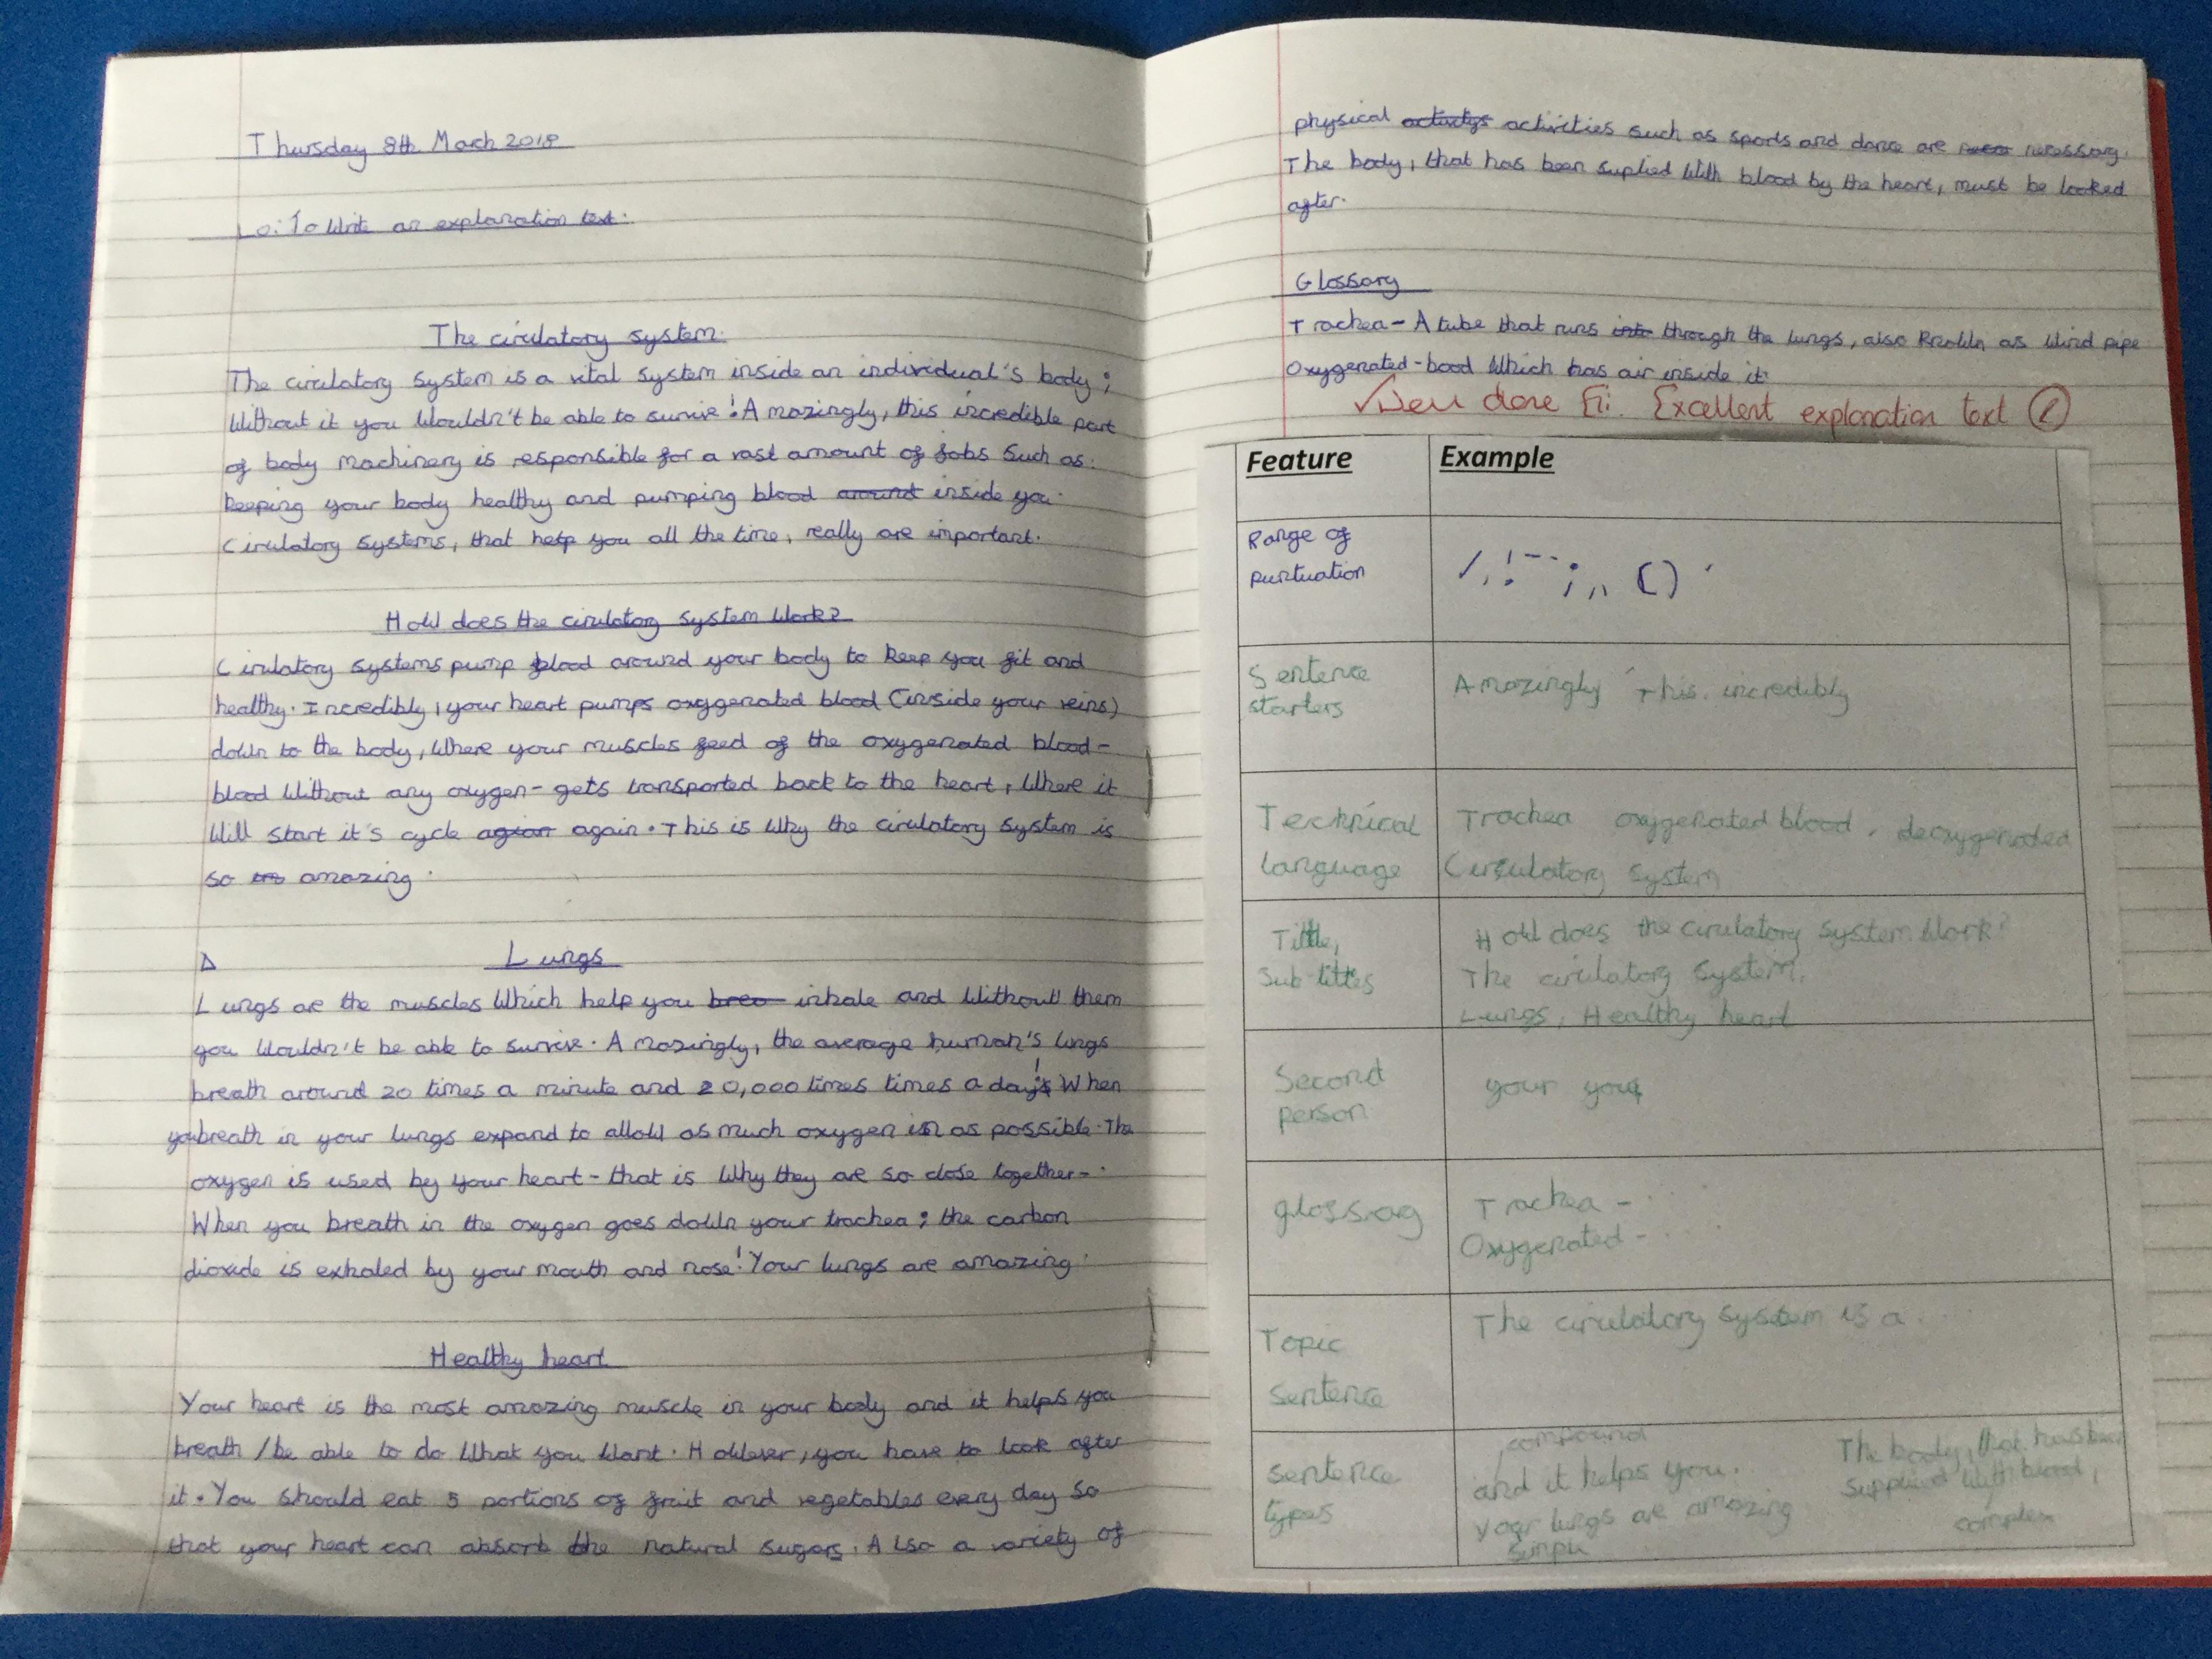 Thursday 8th March 2018
Lo: To write an explanation text.
The circulatory system.
The circulatory system is a vital system inside an individual's body;
without it you wouldn't be able to survive! Amazingly, this incredible part
of body machinery is responsible for a vast amount of jobs such as:
keeping your body healthy and pumping blood around inside you.
Circulatory systems, that help you all the time, really are important.
How does the circulatory system work?
Circulatory systems pump blood around your body to keep you fit and
healthy. Incredibly, your heart pumps oxygenated blood (inside your veins)
down to the body, where your muscles feed of the oxygenated blood -
blood without any oxygen - gets transported back to the heart, where it
will start it's cycle agian again. This is why the circulatory system is
so amazing.
Lungs
Lungs are the muscles which help you brea inhale and without them
you wouldn't be able to survive. Amazingly, the average human's lungs
breath around 20 times a minute and 20,000 times times a day! When
you breath in your lungs expand to allow as much oxygen in as possible. The
oxygen is used by your heart - that is why they are so close together -.
When you breath in the oxygen goes down your trachea; the carbon
dioxide is exhaled by your mouth and nose! Your lungs are amazing.
Healthy heart
Your heart is the most amazing muscle in your body and it helps you
breath / be able to do what you want. However, you have to look after
it. You should eat 5 portions of fruit and vegetables every day so
that your heart can absorb the natural sugars. Also a variety of
physical activitys activities such as sports and dance are necessary.
The body, that has been suplied with blood by the heart, must be looked
after.
Glossary
Trachea - A tube that runs into through the lungs, also known as wind pipe
Oxygenated - bood which has air inside it.
✓ Well done Eli. Excellent explanation text
Feature Example
Range of
puntuation
/ , ! - - ; , , ( ) '
Sentence
starters
Amazingly This. incredibly
Technical
language
Trachea oxygenated blood, deoxygenated
Circulatory system
Tittle,
Sub-tittles
How does the circulatory system work?
The circulatory system.
Lungs, Healthy heart
Second
person
your you
glossary
Trachea - ...
Oxygenated - ...
Topic
sentence
The circulatory system is a...
sentence
types
compound
and it helps you.
Your lungs are amazing
simple
The body, that has been
supplied with blood,
complex